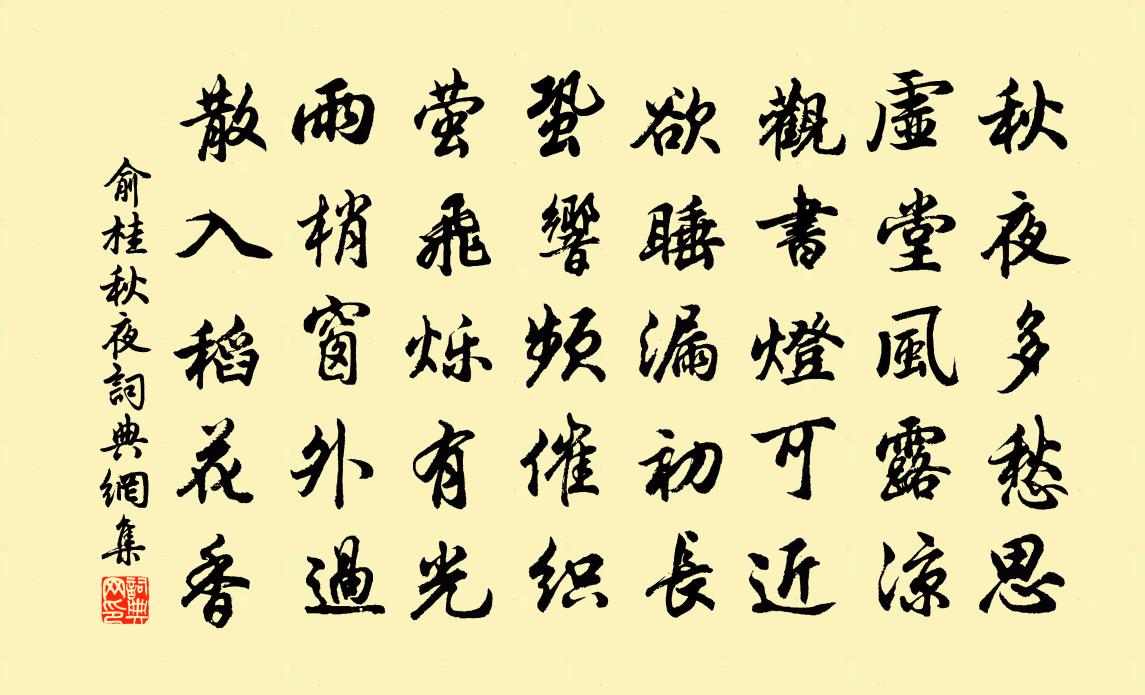 秋夜多愁思
虛堂風露涼
觀書燈可近
欲睡漏初長
蛩響頻催织
萤飛烁有光
雨梢窗外過
散入稻花香
俞桂秋夜詞典網集
詞典网印